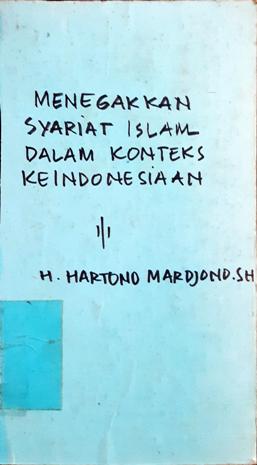 MENEGAKKAN
SYARIAT ISLAM
DALAM KONTEKS
KEINDONESIAAN
H. HARTONO MARDJONO.SH